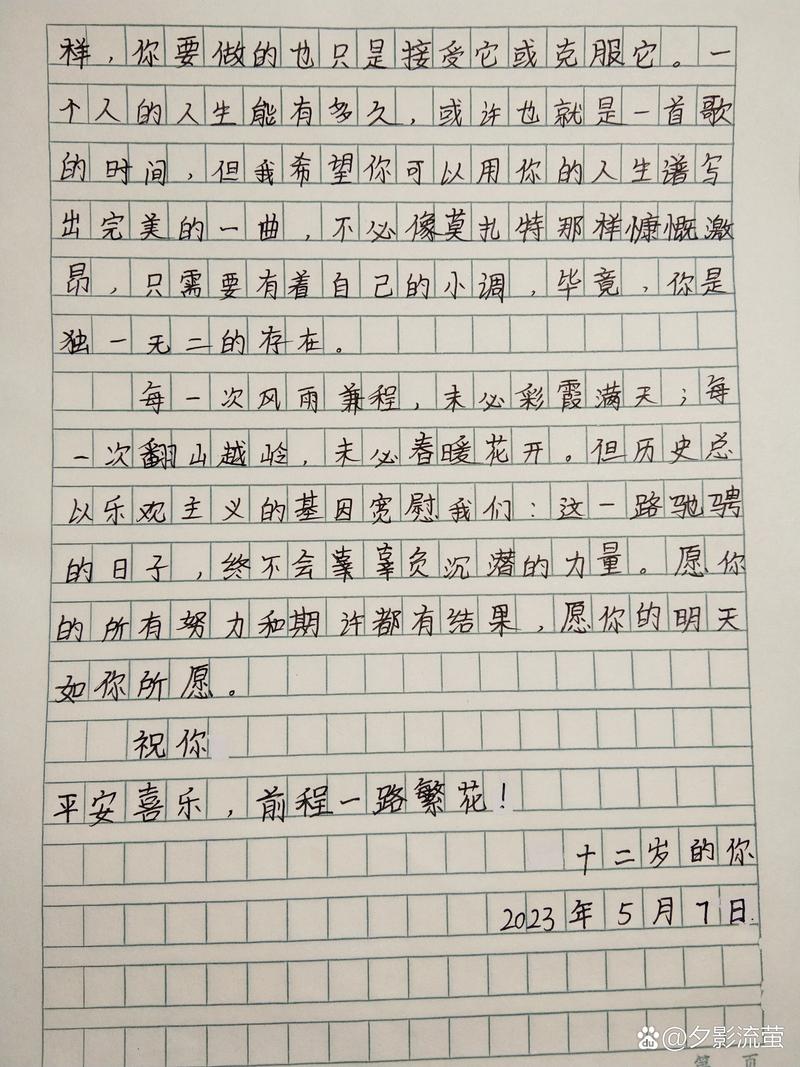 样，你要做的也只是接受它或克服它。一
个人的人生能有多久，或许也就是一首歌
的时间，但我希望你可以用你的人生谱写
出完美的一曲，不必像莫扎特那样慷慨激
昂，只需要有着自己的小调，毕竟，你是
独一无二的存在。
每一次风雨兼程，未必彩霞满天；每
一次翻山越岭，未必春暖花开。但历史总
以乐观主义的基因宽慰我们：这一路驰骋
的日子，终不会辜辜负沉潜的力量。愿你
的所有努力和期许都有结果，愿你的明天
如你所愿。
祝你
平安喜乐，前程一路繁花！
十二岁的你
2023年5月7日.
du @夕影流萤
第 页